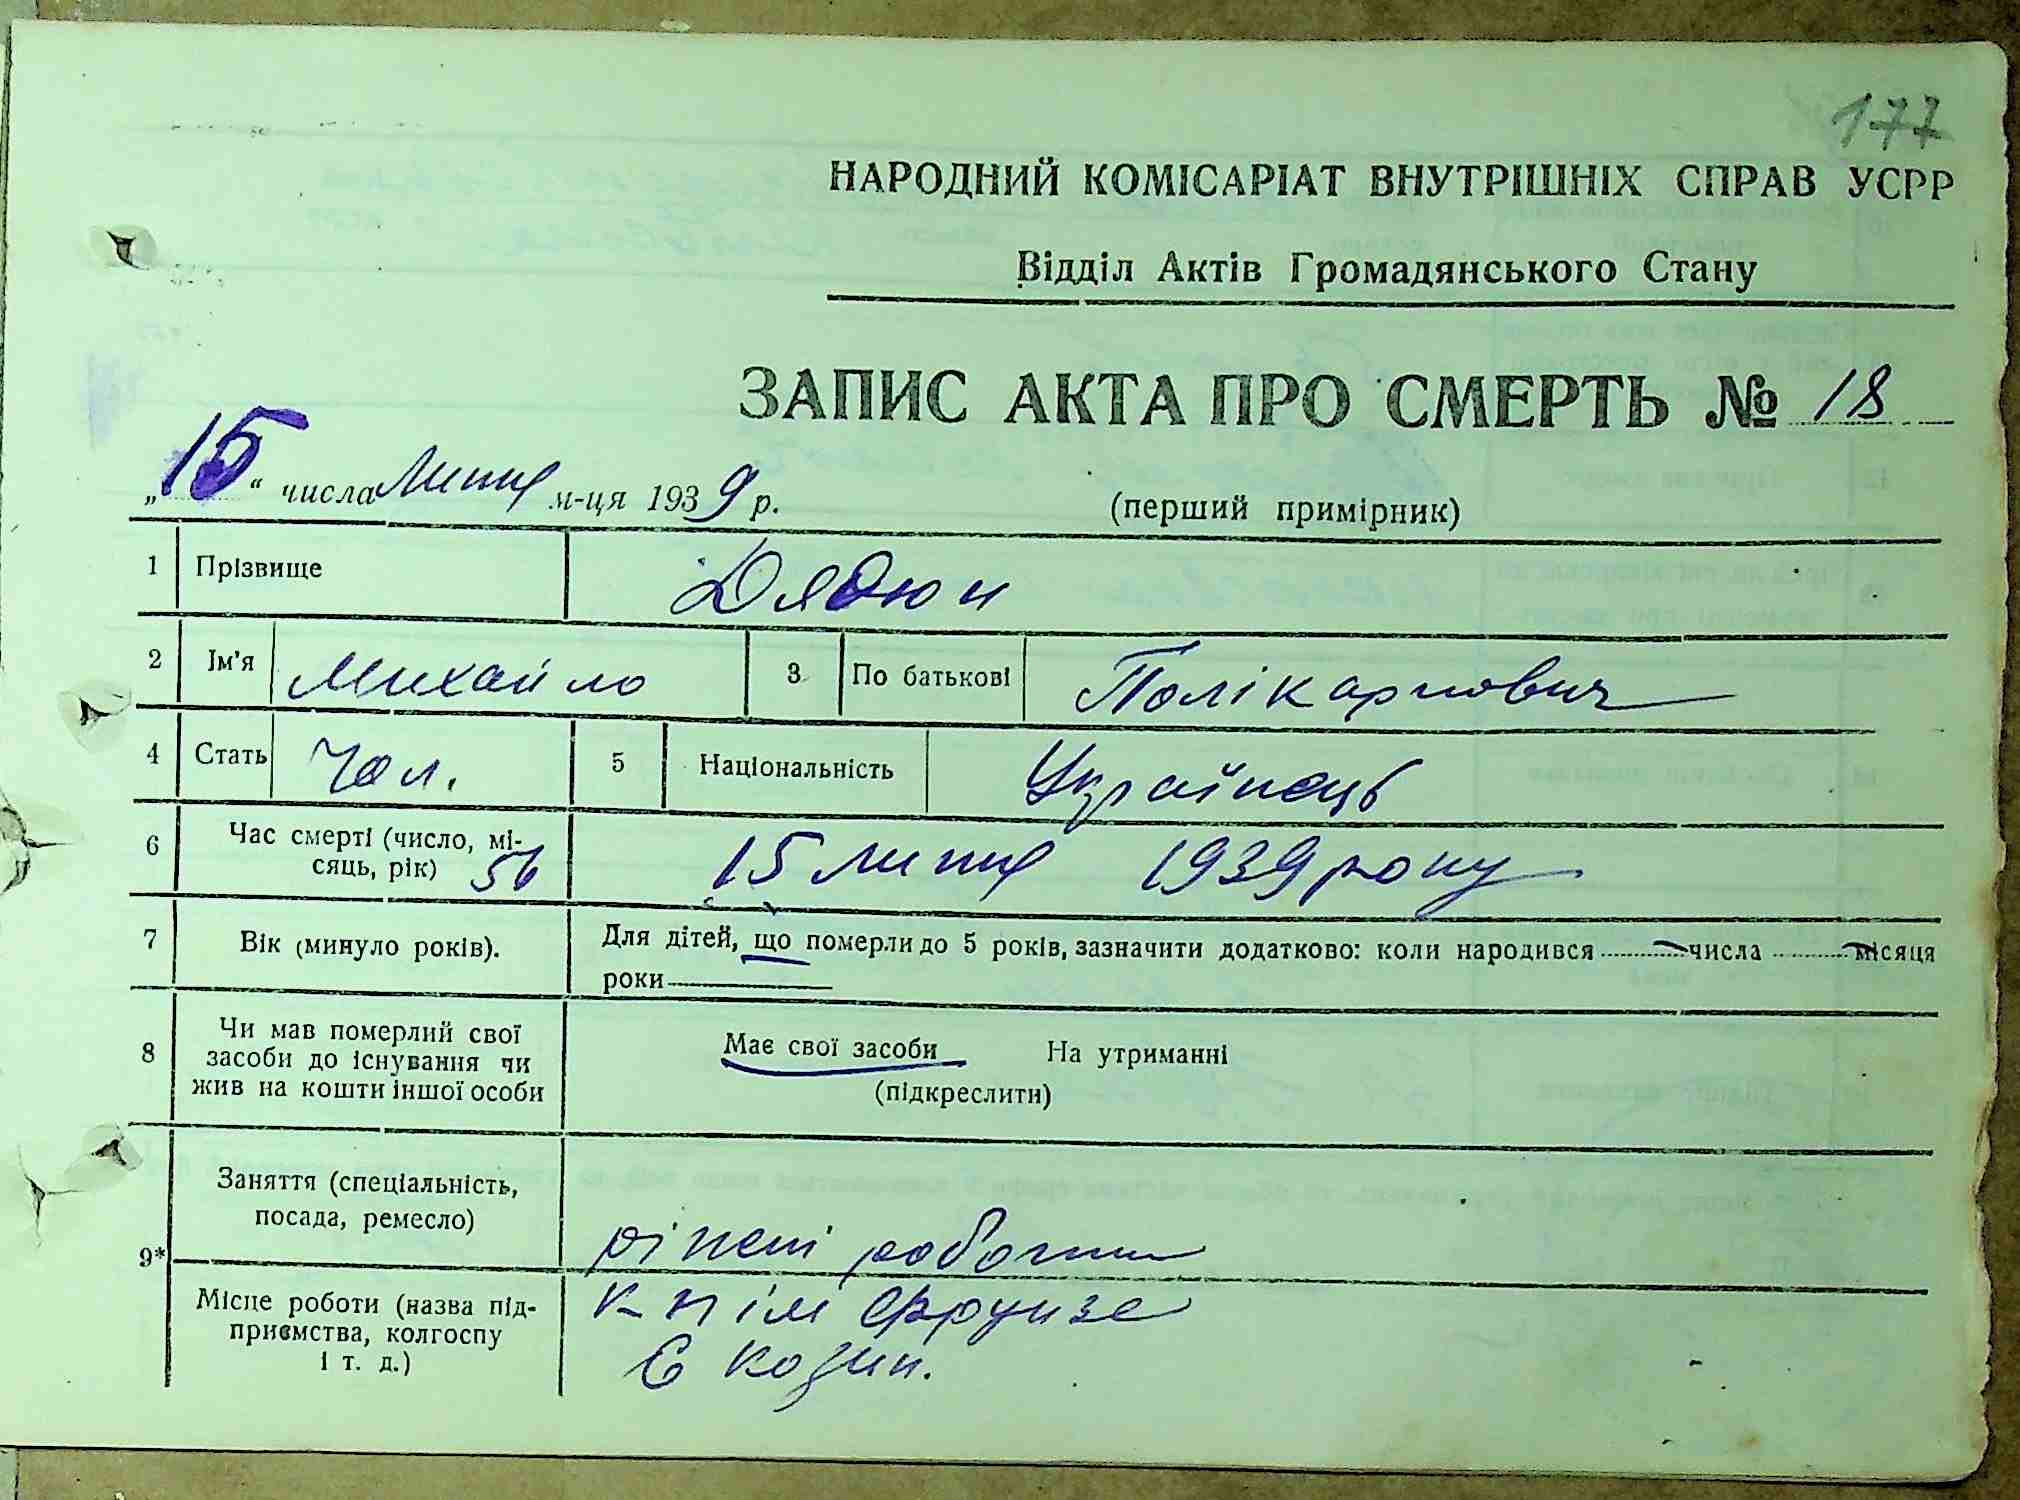 177
НАРОДНИЙ КОМІСАРІАТ ВНУТРІШНІХ СПРАВ УСРР
Відділ Актів Громадянського Стану
ЗАПИС АКТА ПРО СМЕРТЬ № 18
„15“ числа липня м-ця 1939 р. (перший примірник)
1 Прізвище Дядюн
2 Ім'я Михайло 3 По батькові Полікарпович
4 Стать Чол. 5 Національність Українець
6 Час смерті (число, мі-
сяць, рік) 56 15 липня 1939 року
7 Вік (минуло років). Для дітей, що померли до 5 років, зазначити додатково: коли народився числа місяця
роки
8 Чи мав померлий свої
засоби до існування чи
жив на кошти іншої особи
Має свої засоби На утриманні
(підкреслити)
9* Заняття (спеціальність,
посада, ремесло)
різні роботи
Місце роботи (назва під-
приємства, колгоспу
і т. д.)
к-п ім Фрунзе